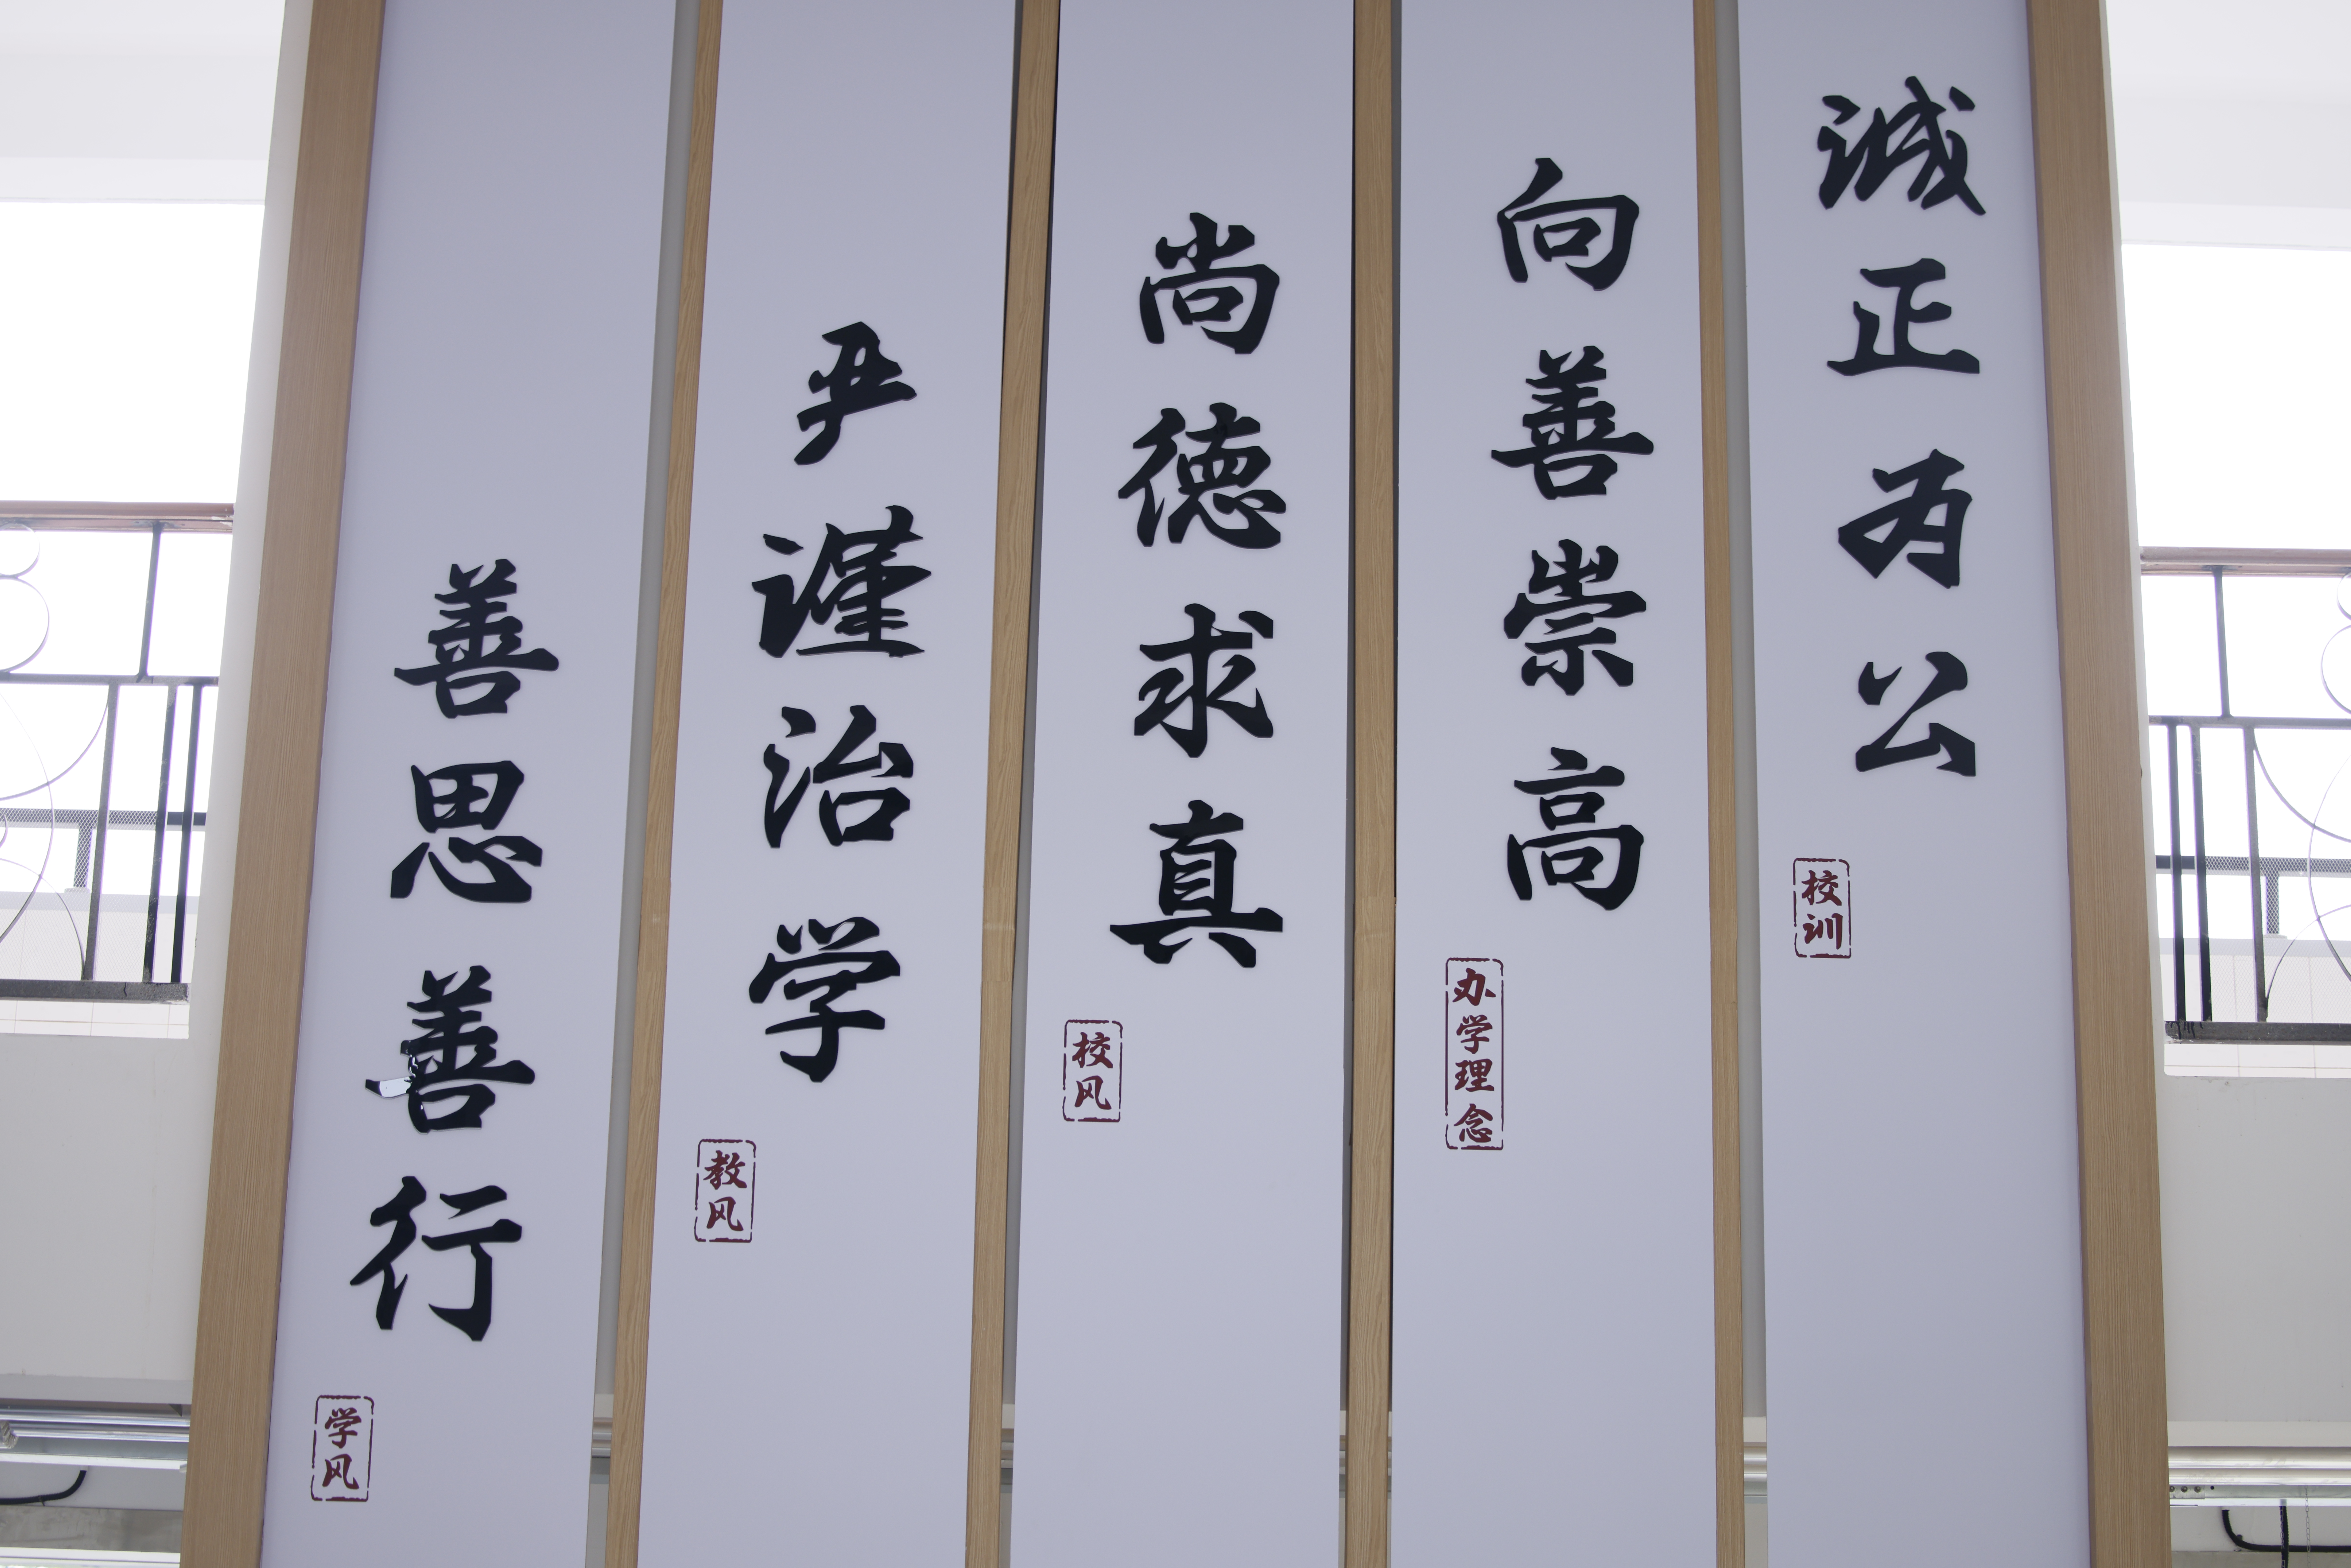 诚正为公
校训
向善崇高
办学理念
尚德求真
校风
严谨治学
教风
善思善行
学风